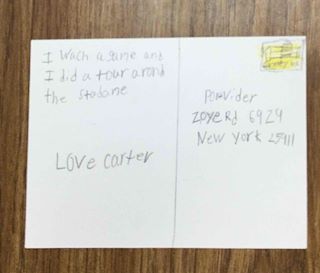 I Wach a game and
I did a tour arond
the stadane
Love carter
Porvider
zoye Rd 6929
New York 25911